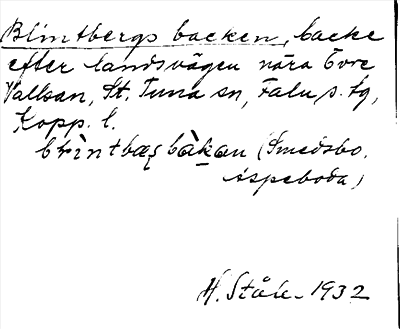 Blintbergs backen, backe
efter landsvägen nära Övre
Vallsan, St. Tuna sn, Falu s. tg,
Kopp. l.
blìntbæʂbàkan (Smedsbo.
Aspeboda)
H. Ståhl 1932